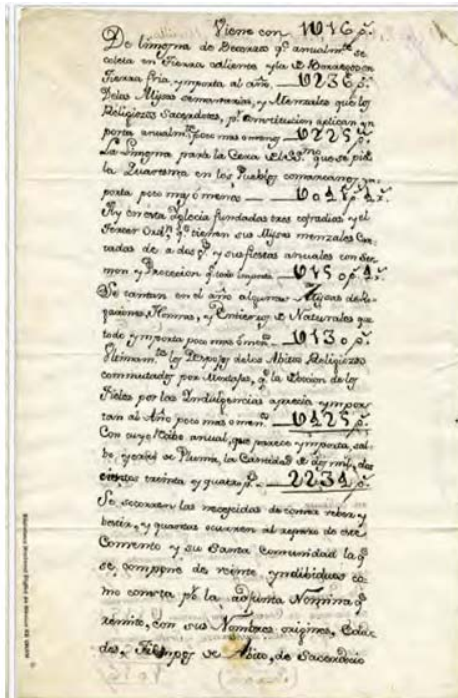 Viene con 1016 p.s
De limosna de Becerros q.e anualm.te se
colecta en Tierra caliente y la de Borregos en
Tierra fria, ymporta al año. 0236 p.s
De las Mysas semanarias, y Mensales que los
Religiozos Sacerdotes, p.r constitucion aplican ym
porta anualm.te poco mas ó menos 0225 p.s
La Limosna para la Cera del SS.mo que se pide
la Quaresma en los Pueblos comarcanos ym
porta poco mas ó menos
Ay en esta Yglecia fundadas tres cofradias y el
Tercer Ord.n q.e tienen sus Mysas menzales Can
tadas de a dos p.s y sus fiestas anuales con Ser
mon y Procecion q.e todo importa
Se cantan en el año algunas Mysas de Ro
gaciones, Honras, y Entierros de Naturales que
todo ymporta poco mas ó men.s 0130 p.s
Ultimam.te los Despojos de los Abitos Religiozos
commutados por Mortajas, q.e la Devocion de los
Fieles por las Yndulgencias aprecia ympor
tan al Año poco mas ó men.s 0425 p.s
Con cuyo Recibo anual, que parece ymporta, sal
bo yerro de Pluma, la Cantidad de dos mil, dos
cientos treinta y quatro p.s 2234 p.s
Se socorren las necesidades de comer beber y
bestir, y quantas ocurren al reparo de este
Comvento y su Santa Comunidad la q.e
se compone de veinte yndibiduos co
mo consta p.r la adjunta Nomina q.e
remito, con sus Nombres origines, Eda
des, Tiempos de Abito, de Sacerdocio